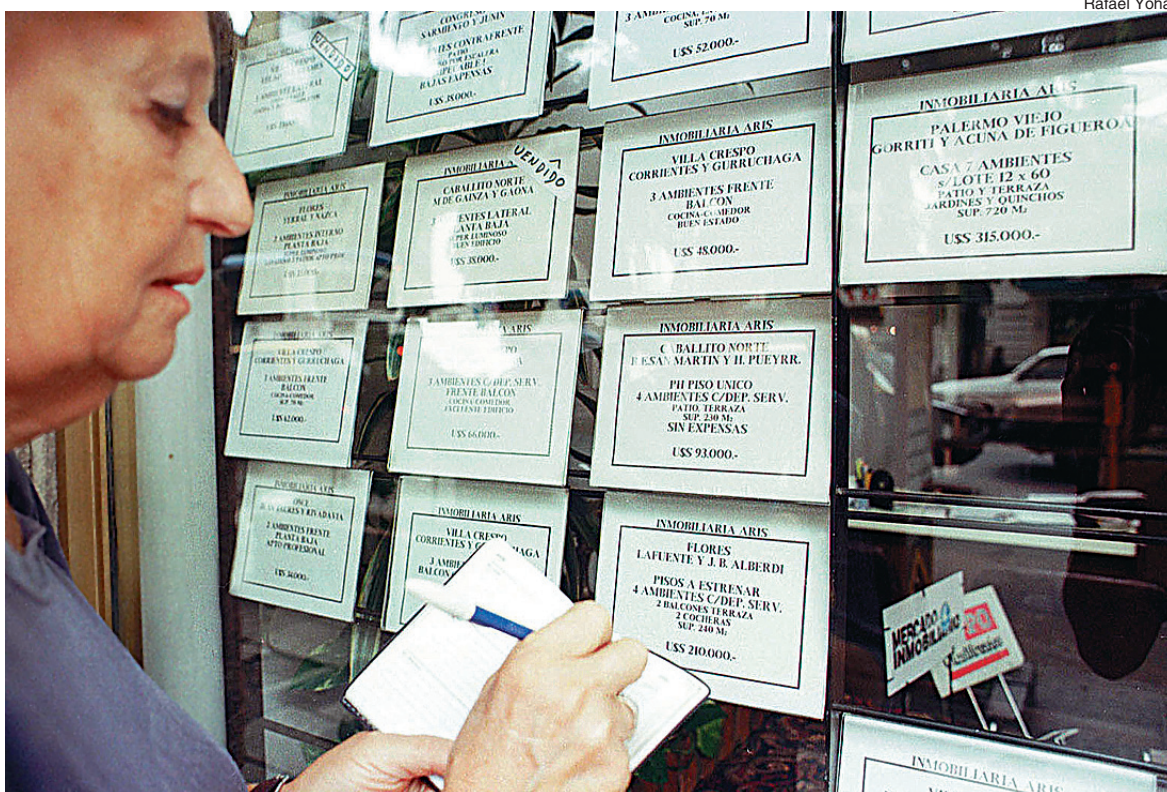 Rafael Yoha
VENDIDO
SARMIENTO Y JUNIN
CONTRAFRENTE
PATIO
BAJAS EXPENSAS
U$S 38.000.-
COCINA
SUP. 70 M2
U$S 52.000.-
INMOBILIARIA ARIS
FLORES
YERBAL Y NAZCA
2 AMBIENTES INTERNO
PLANTA BAJA
INMOBILIARIA
VENDIDO
CABALLITO NORTE
M DE GAINZA Y GAONA
LATERAL
PLANTA BAJA
SUPER LUMINOSO
BUEN EDIFICIO
U$S 38.000.-
INMOBILIARIA ARIS
VILLA CRESPO
CORRIENTES Y GURRUCHAGA
3 AMBIENTES FRENTE
BALCON
COCINA-COMEDOR
BUEN ESTADO
U$S 48.000.-
INMOBILIARIA ARIS
PALERMO VIEJO
GORRITI Y ACUÑA DE FIGUEROA
CASA 7 AMBIENTES
s/LOTE 12 x 60
PATIO Y TERRAZA
JARDINES Y QUINCHOS
SUP. 720 M2
U$S 315.000.-
INMOBILIARIA ARIS
VILLA CRESPO
CORRIENTES Y GURRUCHAGA
AMBIENTES FRENTE
BALCON
COCINA-COMEDOR
SUP. 70 M2
U$S 62.000.-
INMOBILIARIA ARIS
3 AMBIENTES C/DEP. SERV.
FRENTE BALCON
COCINA COMEDOR
EXCELENTE EDIFICIO
U$S 66.000.-
INMOBILIARIA ARIS
CABALLITO NORTE
SAN MARTIN Y H. PUEYRR.
PH PISO UNICO
4 AMBIENTES C/DEP. SERV.
PATIO, TERRAZA
SUP. 230 M2
SIN EXPENSAS
U$S 93.000.-
INMOBILIARIA ARIS
Y RIVADAVIA
2 AMBIENTES FRENTE
PLANTA BAJA
APTO PROFESIONAL
U$S 34.000.-
INMOBILIARIA ARIS
VILLA CRESPO
CORRIENTES Y
BALCON
INMOBILIARIA ARIS
FLORES
LAFUENTE Y J. B. ALBERDI
PISOS A ESTRENAR
4 AMBIENTES C/DEP. SERV.
2 BALCONES TERRAZA
2 COCHERAS
SUP. 240 M2
U$S 210.000.-
MERCADO
INMOBILIARIO
INMOBILIARIA ARIS